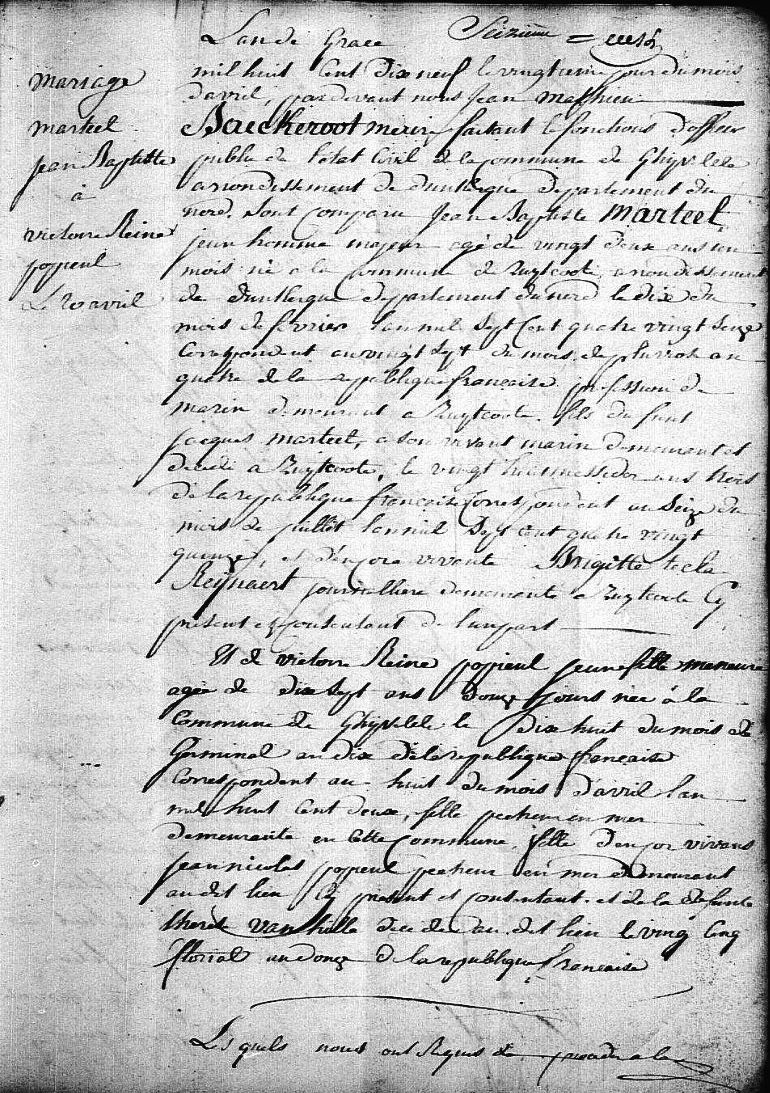 L'an de Grace Seizieme =
mil huit Cent Dix neuf le vingtieme jour du mois
d'avril, par devant nous Jean Mathieu
Baeckeroot Meire faisant les fonctions d'officier
public de l'état Civil de la commune de Ghyvelde
arrondissement de dunkerque departement du
nord, sont comparu Jean Baptiste Marteel,
jeun homme majeur agé de vingt deux ans un
mois né a la commune de Zuytcoote, arrondissement
de dunkerque departement du nord le dix du
mois de fevrier lan mil sept cent quatre vingt seize
Correspondent au vingt sept du mois de pluviose an
quatre de la republique française, profession de
marin demeurant a Zuytcoote, fils du feut
Jacques Marteel, a son vivant marin demeurant et
decedé a Zuytcoote, le vingt huit messidor ans trois
de la republique française Correspondent au Seize du
mois de juillet lan mil Sept cent quatre vingt
quinze, et d'encore vivante Brigitte tecla
Reynaert journalliere demeurante a Zuytcoote Cy
present et consentant de l'un part
Et de victoire Reine poppeul jeune fille meneure
agée de dix Sept ans Douze jours née à la
Commune de Ghyvelde le Dix huit du mois de
Germinal an dix de la republique française
Correspondent au huit du mois d'avril lan
mil huit Cent deux, fille pecheur en mer
demeurante en cette Commune, fille d'encor vivans
jean nicolas poppeul pecheur en mer demeurant
au dit lieu Cy present et consentant et de la defunte
therese vanhille decedée au dit lieu le vingt Cinq
floreal an donze de la republique française
Lesquels nous ont Requis de procéder a la
mariage
marteel
jean Baptiste
à
victoire Reine
poppeul
Le 20 avril